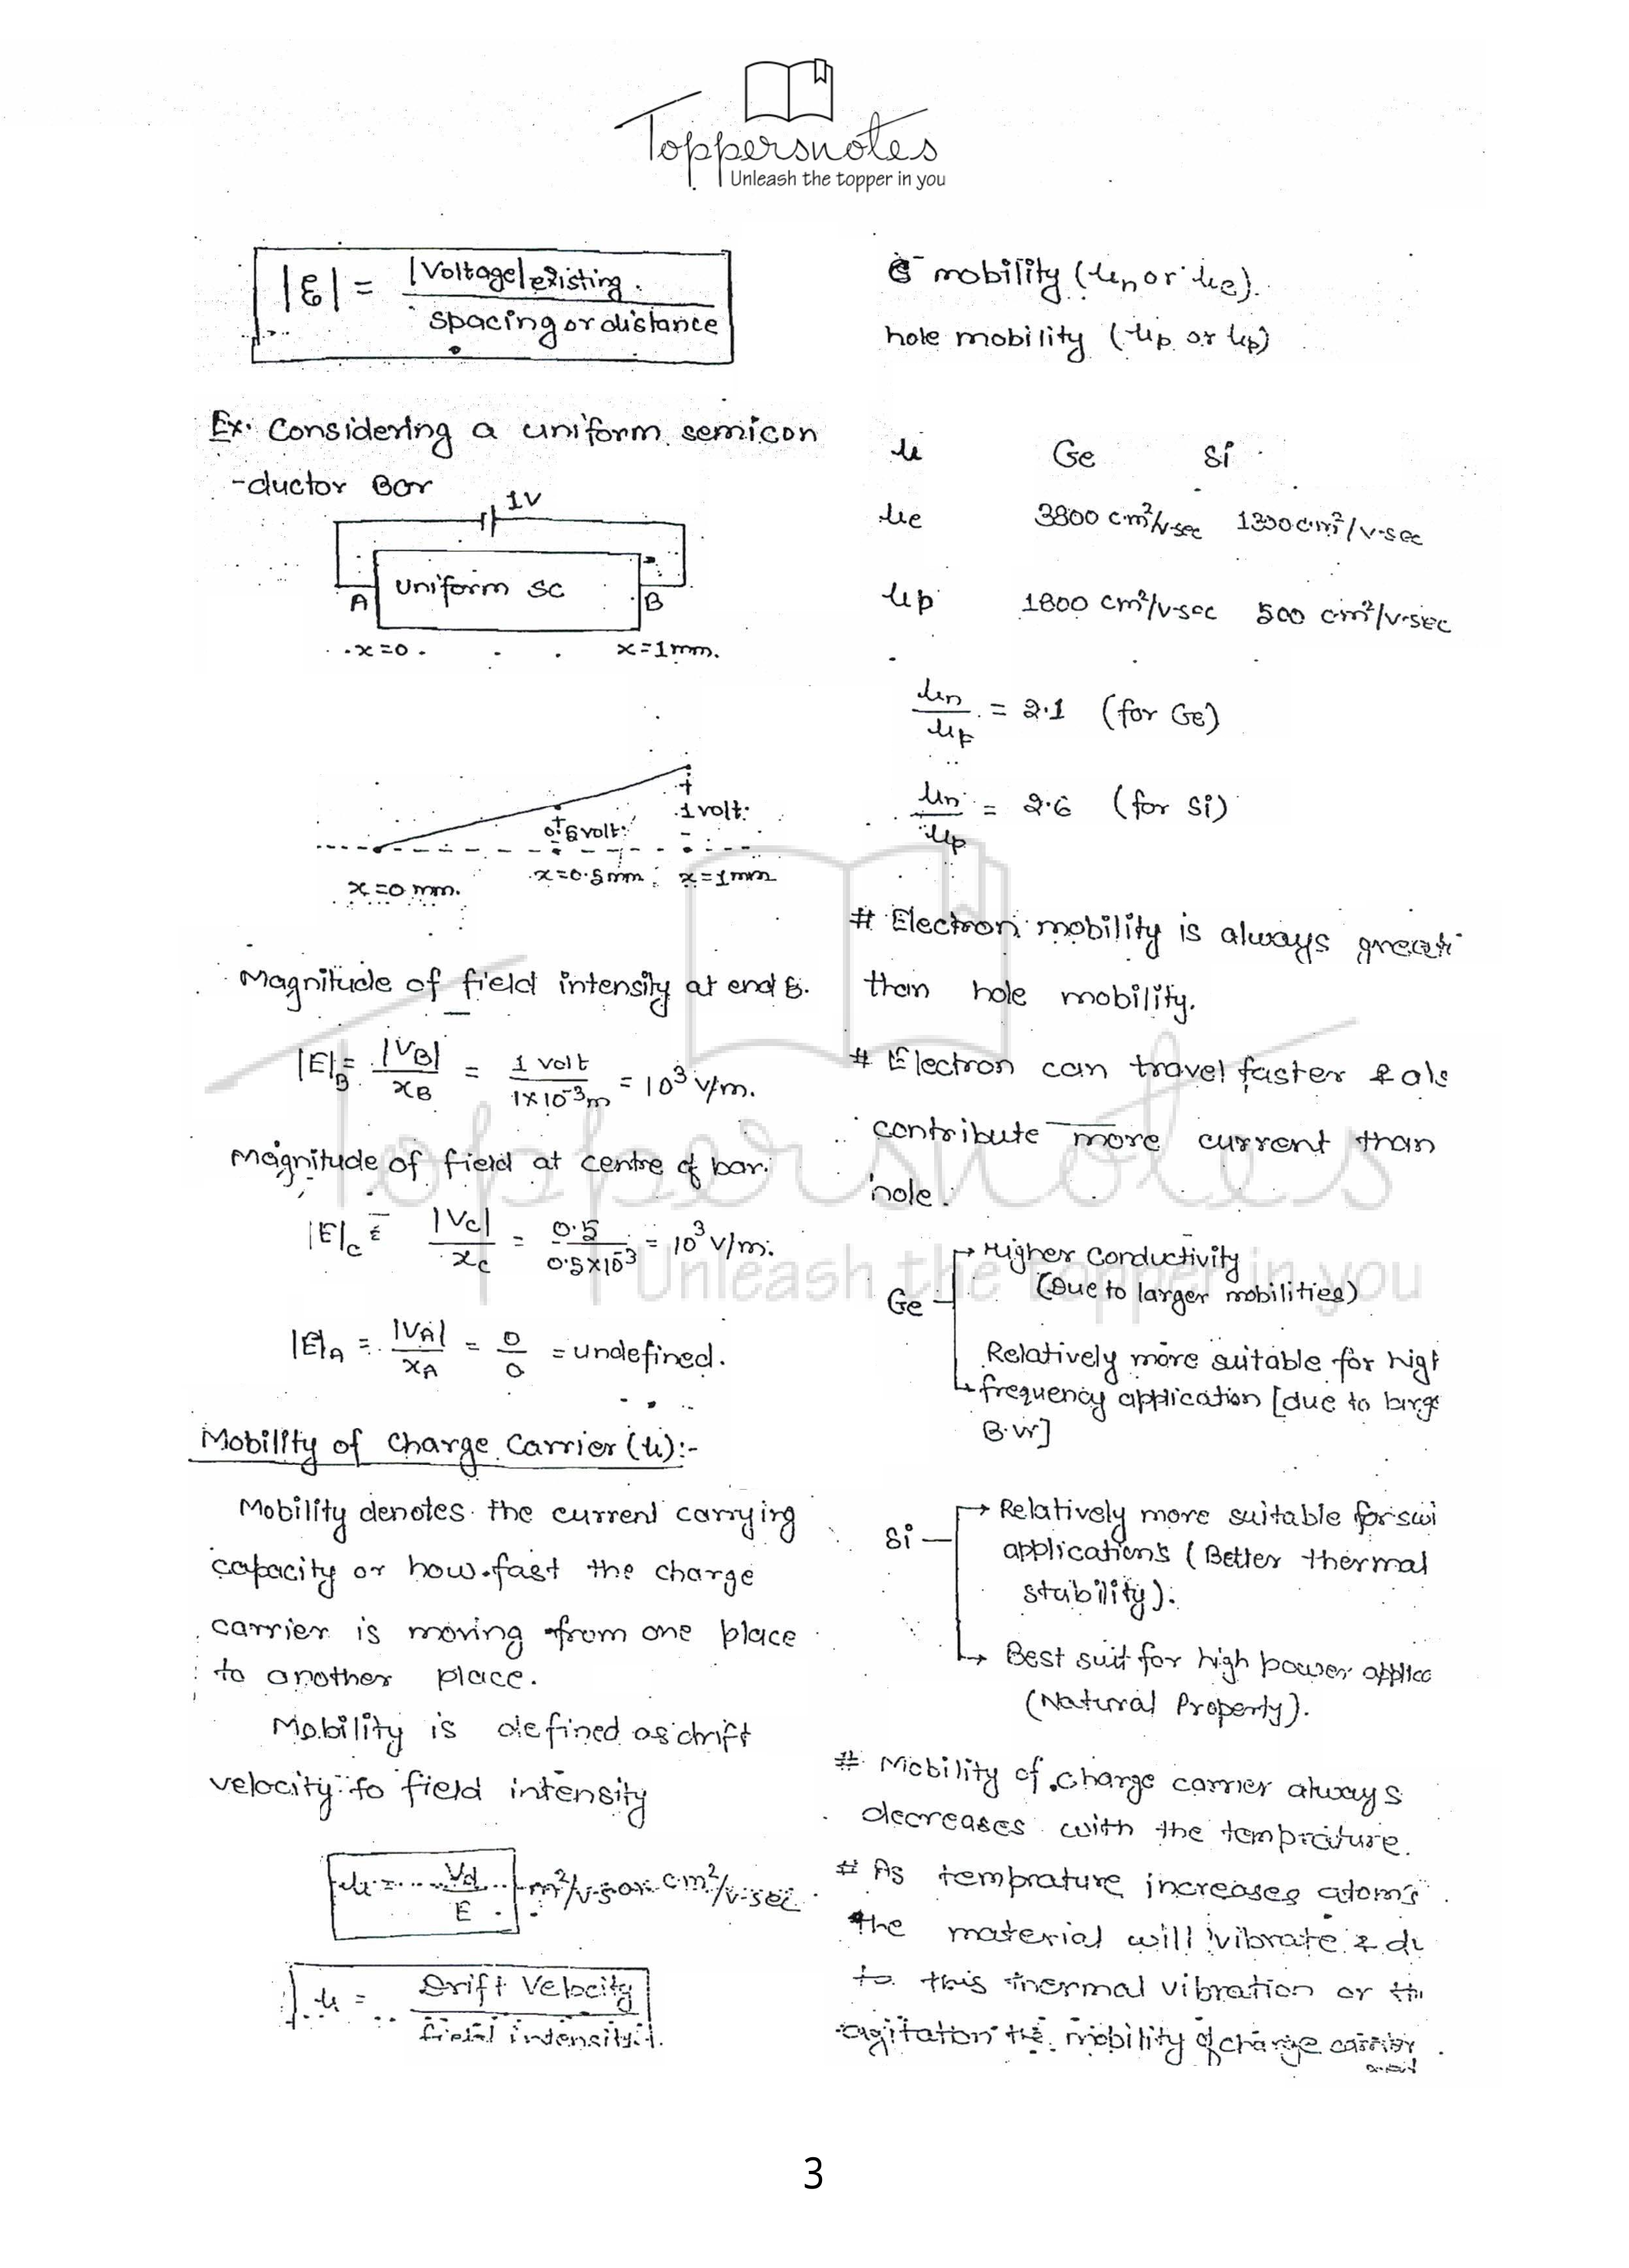 Toppersnotes
Unleash the topper in you
|ε| = |Voltage| existing. / spacing or distance
Ex. Considering a uniform semicon
-ductor Bar
1V
uniform SC
A
B
x=0
x=1mm.
1 volt.
0.5 volt.
x=0 mm.
x=0.5mm
x=1mm
Magnitude of field intensity at end B.
|E|B = |VB| / xB = 1 volt / 1×10⁻³m = 10³ V/m.
Magnitude of field at centre of bar.
|E|c = |Vc| / xc = 0.5 / 0.5×10⁻³ = 10³ V/m.
|E|A = |VA| / xA = 0/0 = undefined.
Mobility of Charge Carrier (μ):-
Mobility denotes the current carrying
capacity or how fast the charge
carrier is moving from one place
to another place.
Mobility is defined as drift
velocity to field intensity
μ = Vd / E m²/v-s or cm²/v-sec
μ = Drift Velocity / field intensity
e⁻ mobility (μn or μe).
hole mobility (μp or μp)
μ Ge Si
μe 3800 cm²/v-sec 1300 cm²/v-sec
μp 1800 cm²/v-sec 500 cm²/v-sec
μn / μp = 2.1 (for Ge)
μn / μp = 2.6 (for Si)
# Electron mobility is always great
than hole mobility.
# Electron can travel faster & als
contribute more current than
hole.
Ge
Higher Conductivity
(Due to larger mobilities)
Relatively more suitable for high
frequency application [due to large
B.W]
Si
Relatively more suitable for swi
applications (Better thermal
stability).
Best suit for high power applica
(Natural Property).
# Mobility of charge carrier always
decreases with the temprature.
# As temprature increases atoms
the material will vibrate & du
to this thermal vibration or th
agitation the mobility of charge carrier
3